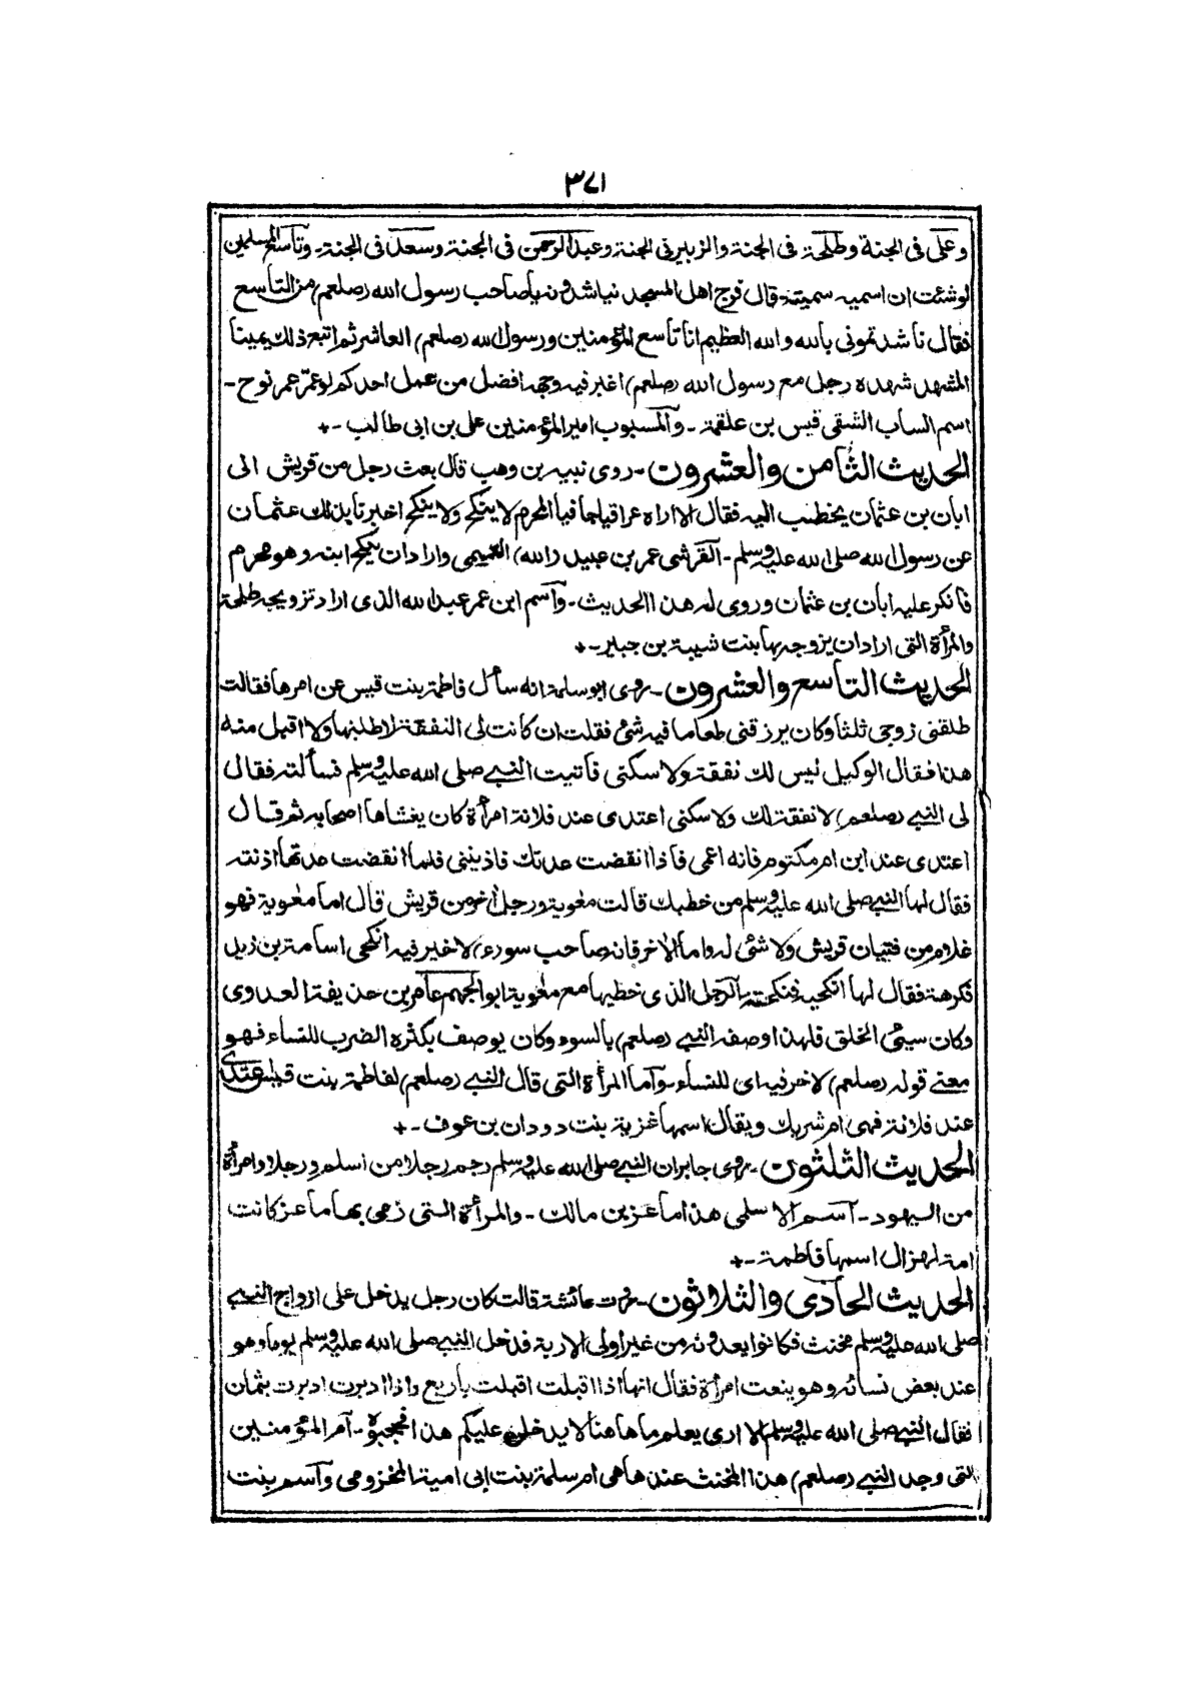 ٣٧١
وعلى فى الجنة وطلحة فى الجنة والزبير فى الجنة وعبد الرحمن فى الجنة وسعد فى الجنة۔ وتاسع المسلمين
لو شئت ان اسميه سميته۔ قال فرج اهل المسجد نياشدونه يا صاحب رسول الله (صلعم) من التاسع
فقال ناشدتمونى بالله والله العظيم انا تاسع المؤمنين ورسول الله (صلعم) العاشر ثم اتبع ذلك يمينا
المشهد شهده رجل مع رسول الله (صلعم) اغبر فيه وجهه افضل من عمل احدكم لو عمّر عمر نوح۔
اسم الساب الشقى قيس بن علقمة۔ والمسبوب امير المؤمنين على بن ابى طالب۔+
الحديث الثامن والعشرون۔ روى نبيه بن وهب قال بعث رجل من قريش الى
ابان بن عثمان يخطب اليه فقال الا اراه عراقيا جافيا المحرم لا ينكح ولا ينكح اخبرنا بذلك عثمان
عن رسول الله صلى الله عليه وسلم۔ القرشى عمر بن عبيد (الله) التيمى وارادان ينكح ابنه وهو محرم
فانكر عليه ابان بن عثمان وروى له هذا الحديث۔ واسم ابن عمر عبد الله الذى اراد تزويجه طلحة
والمرأة التى ارادان يزوجه بها بنت شيبة بن جبير۔+
الحديث التاسع والعشرون۔ روى ابو سلمة انه سأل فاطمة بنت قيس عن امرها فقالت
طلقنى زوجى ثلثا وكان يرزقنى طعاما فيه شئ فقلت ان كانت لى النفقة لاطلبنها ولا اقبل منه
هذا فقال الوكيل ليس لك نفقة ولا سكنى فاتيت النبى صلى الله عليه وسلم فسألته فقال
لى النبى (صلعم) لا نفقة لك ولا سكنى اعتدى عند فلانة امرأة كان يغشاها اصحابه ثم قال
اعتدى عند ابن ام مكتوم فانه اعمى فاذا انقضت عدتك فاذنينى فلما انقضت عدتها اذنته
فقال لها النبى صلى الله عليه وسلم من خطبك قالت معٰوية ورجل اٰخر من قريش قال اما معٰوية فهو
غلام من فتيان قريش ولا شئ له واما الاٰخر فانه صاحب سوء لا خير فيه انكحى اسامة بن زيد
فكرهة فقال لها انكحيه فنكحته۔ الرجل الذى خطبها مع معٰوية ابو الجهم عامر بن حذيفة العدوى
وكان سيئ الخلق فلهذا وصفه النبى (صلعم) بالسوء وكان يوصف بكثرة الضرب للنساء فهو
معنى قوله (صلعم) لا خر فيه اى للنساء۔ واما المرأة التى قال النبى (صلعم) لفاطمة بنت قيس اعتدى
عند فلانة فهى ام شريك ويقال اسمها غزية بنت دودان بن عوف۔+
الحديث الثلثون۔ روى جابر ان النبى صلى الله عليه وسلم رجم رجلا من اسلم ورجلا وامرأة
من اليهود۔ اسم الاسلمى هذا ماعز بن مالك۔ والمرأة التى زمى بها ماعز كانت
امة لهزال اسمها فاطمة۔+
الحديث الحادى والثلاثون۔ روت عائشة قالت كان رجل يدخل على ازواج النبى
صلى الله عليه وسلم مخنث فكانوا يعدونه من غير اولى الاربة فدخل النبى صلى الله عليه وسلم يوما وهو
عند بعض نسائه وهو ينعت امرأة فقال انها اذا اقبلت اقبلت باربع واذا ادبرت ادبرت بثمان
فقال النبى صلى الله عليه وسلم الا ارى يعلم ما هاهنا لا يدخلن عليكم هذا فحجبوه۔ ام المؤمنين
التى وجد النبى (صلعم) هذا المخنث عندها هى ام سلمة بنت ابى امية المخزومى واسم بنت